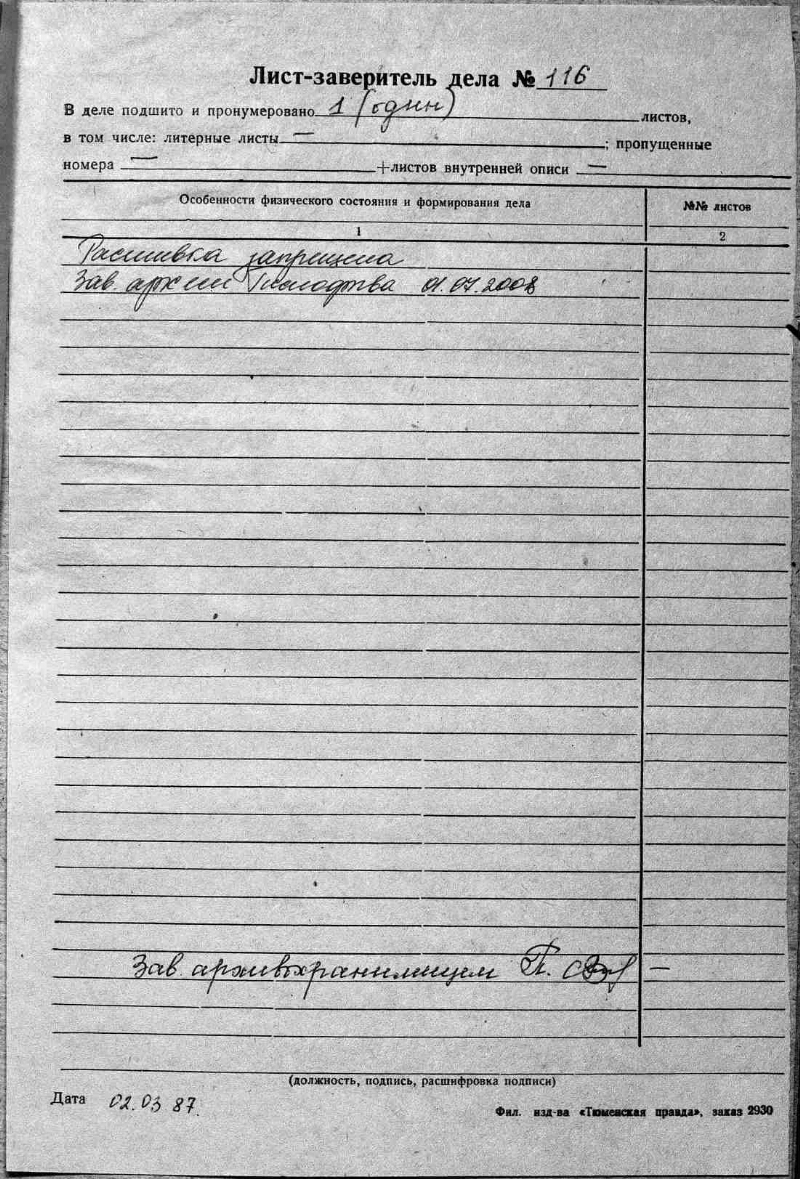 Лист-заверитель дела № 116
В деле подшито и пронумеровано 1 (один) листов,
в том числе: литерные листы — ; пропущенные
номера — +листов внутренней описи —
Особенности физического состояния и формирования дела №№ листов
1 2
Расшивка запрещена
Зав. 01.07.2008
Зав. архивохранилищем —
(должность, подпись, расшифровка подписи)
Дата 02.03 87.
Фил. изд-ва «Тюменская правда», заказ 2930